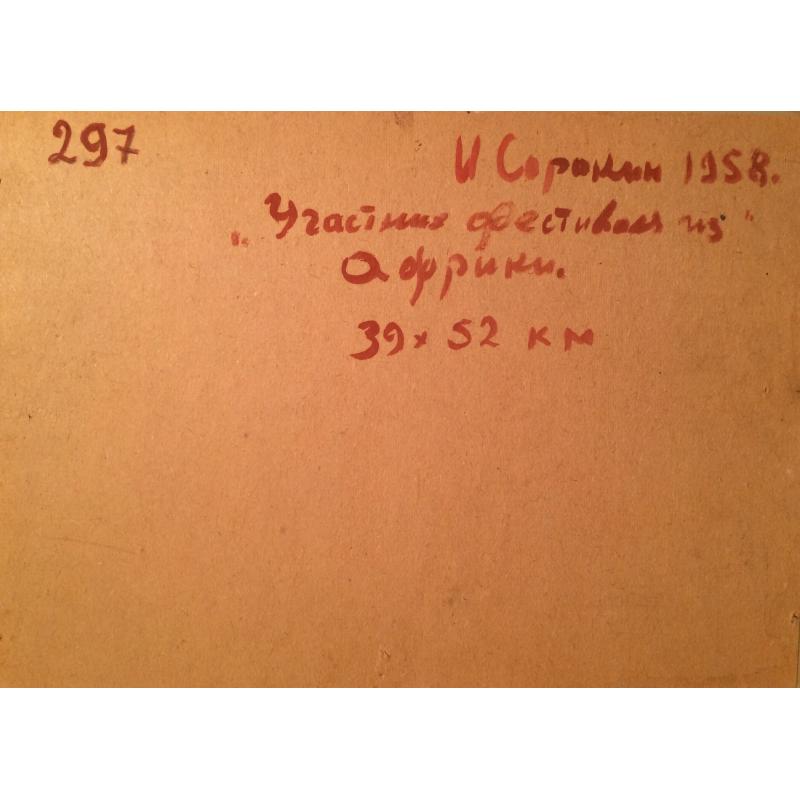 297
И Сорокин 1958.
„Участник фестиваля из"
Африки.
39 x 52 км